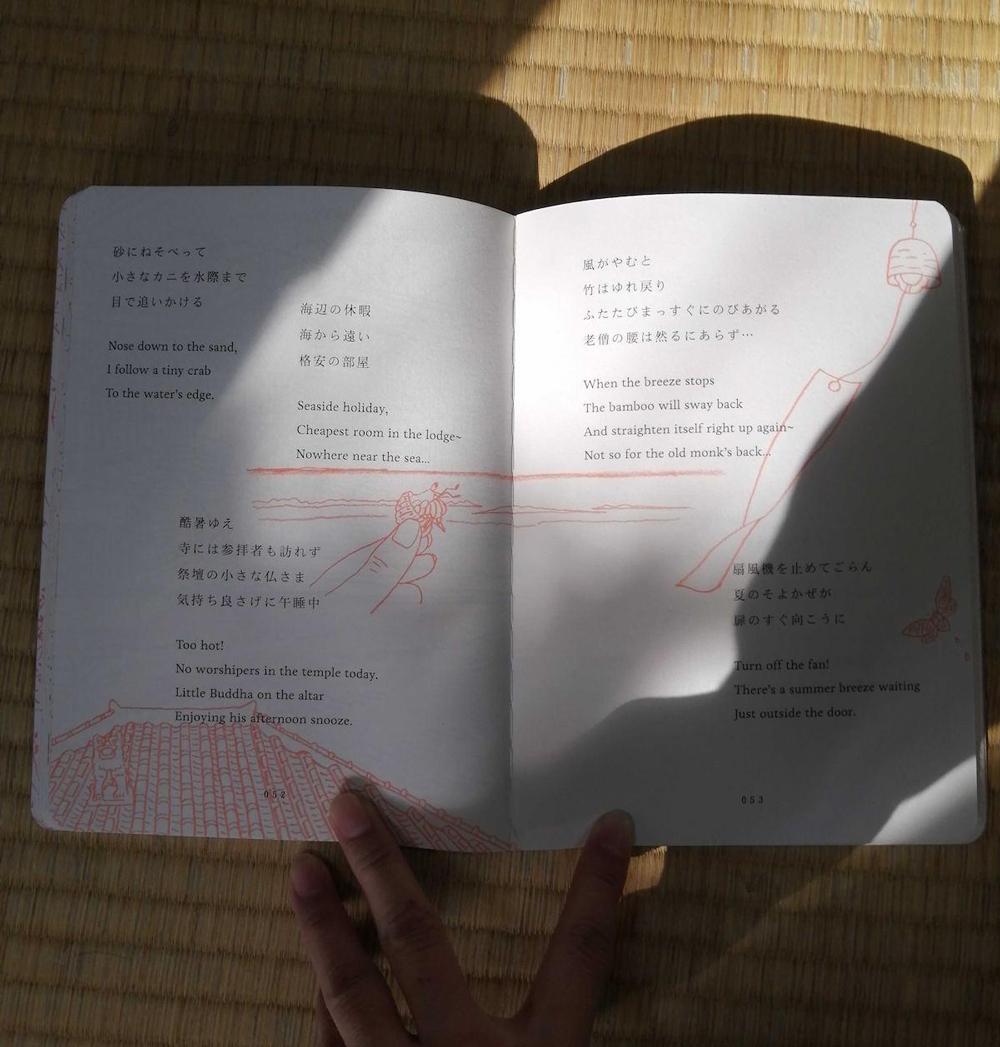 砂にねそべって
小さなカニを水際まで
目で追いかける
Nose down to the sand,
I follow a tiny crab
To the water's edge.
海辺の休暇
海から遠い
格安の部屋
Seaside holiday,
Cheapest room in the lodge~
Nowhere near the sea...
酷暑ゆえ
寺には参拝者も訪れず
祭壇の小さな仏さま
気持ち良さげに午睡中
Too hot!
No worshipers in the temple today,
Little Buddha on the altar
Enjoying his afternoon snooze.
052
風がやむと
竹はゆれ戻り
ふたたびまっすぐにのびあがる
老僧の腰は然るにあらず…
When the breeze stops
The bamboo will sway back
And straighten itself right up again~
Not so for the old monk's back...
扇風機を止めてごらん
夏のそよかぜが
扉のすぐ向こうに
Turn off the fan!
There's a summer breeze waiting
Just outside the door.
053